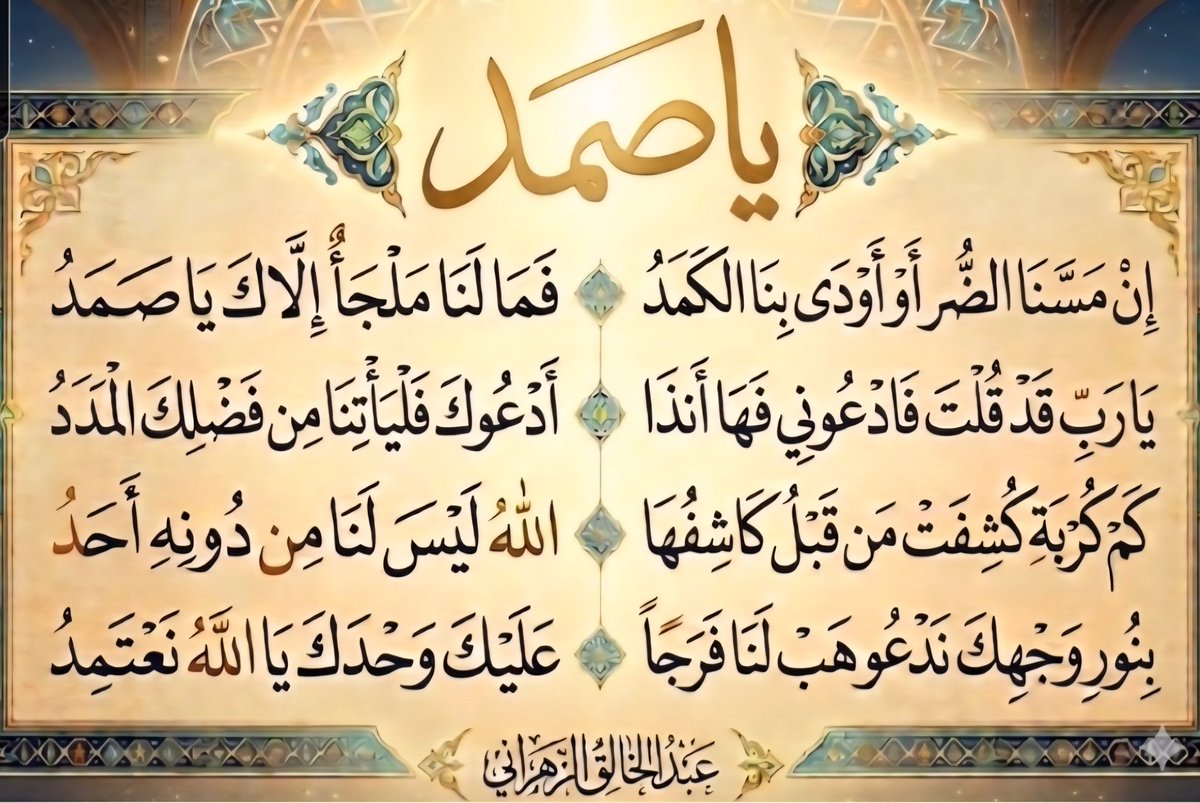 يا صمد
إِنْ مَسَّنَا الضُّر أَوْ أَوْدَى بِنَا الكَمَدُ فَمَا لَنَا مَلْجَأٌ إِلَّاكَ يَا صَمَدُ
يَا رَبِّ قَدْ قُلْتَ فَادْعُونِي فَهَا أَنذَا أَدْعُوكَ فَلْيَأْتِنَا مِن فَضْلِكَ الْمَدَدُ
كَمْ كُرْبَةِ كُشِفَتْ مَن قَبْلُ كَاشِفُهَا اللهُ لَيْسَ لَنَا مِن دُونِهِ أَحَدُ
بِنُورِ وَجْهِكَ نَدْعُو هَبْ لَنَا فَرَجًا عَلَيْكَ وَحْدَكَ يَا اللَّهُ نَعْتَمِدُ
عَبْدُ الخَالِقُ الزَّهْرَانِي